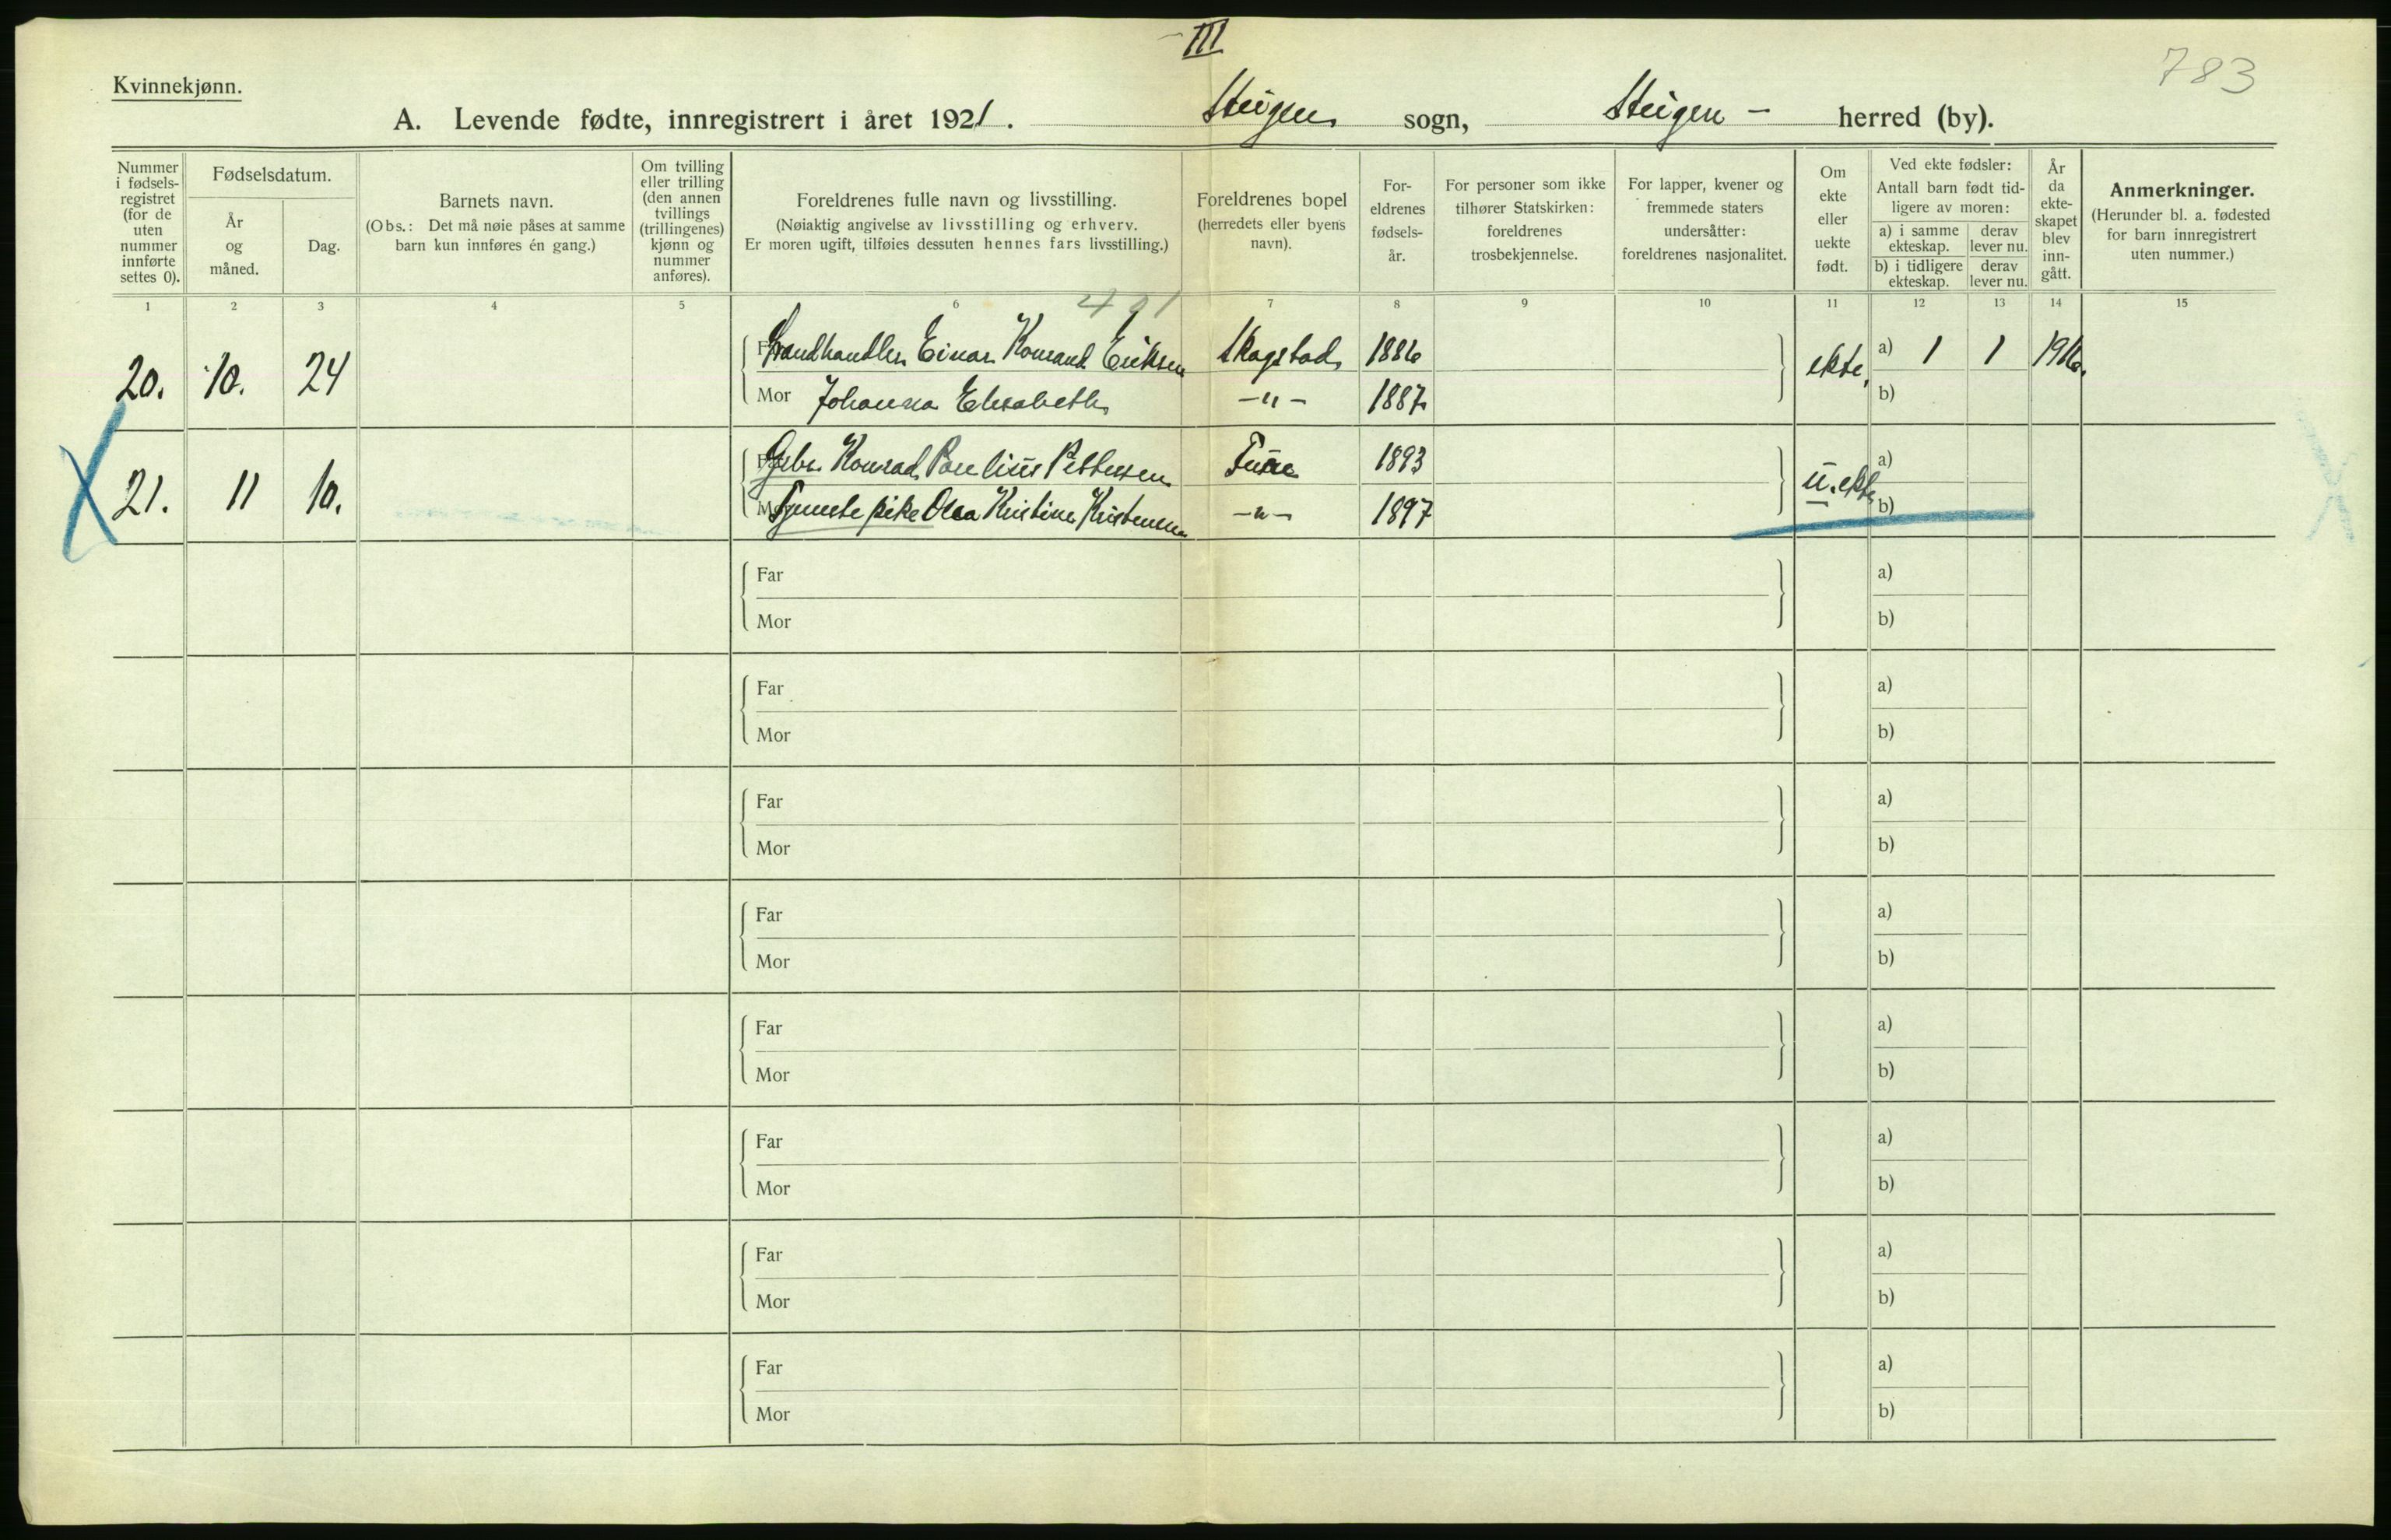 III
783
Kvinnekjønn.
A. Levende fødte, innregistrert i året 1921. Steigen sogn, Steigen – herred (by).
Nummer i fødsels-registret (for de uten nummer innførte settes 0).
Fødselsdatum.
År og måned.
Dag.
Barnets navn.
(Obs.: Det må nøie påses at samme barn kun innføres én gang.)
Om tvilling eller trilling (den annen tvillings (trillingenes) kjønn og nummer anføres).
Foreldrenes fulle navn og livsstilling.
(Nøiaktig angivelse av livsstilling og erhverv.
Er moren ugift, tilføies dessuten hennes fars livsstilling.)
Foreldrenes bopel (herredets eller byens navn).
For-eldrenes fødsels-år.
For personer som ikke tilhører Statskirken: foreldrenes trosbekjennelse.
For lapper, kvener og fremmede staters undersåtter: foreldrenes nasjonalitet.
Om ekte eller uekte født.
Ved ekte fødsler:
Antall barn født tid-ligere av moren:
a) i samme ekteskap.
derav lever nu.
b) i tidligere ekteskap.
derav lever nu.
År da ekte-skapet blev inn-gått.
Anmerkninger.
(Herunder bl. a. fødested for barn innregistrert uten nummer.)
1 2 3 4 5 6 7 8 9 10 11 12 13 14 15
491
20. 10. 24 Landhandler Einar Konrad Eriksen Skagstad 1886 ekte, a) 1 1 1916.
Mor Johanna Elisabeth –"– 1887 b)
21. 11 10. Gbr. Konrad Paulius Pettersen 1893 u. ekte a)
Tjeneste pike Kristine Kristensen –"– 1897 b)
Far a)
Mor b)
Far a)
Mor b)
Far a)
Mor b)
Far a)
Mor b)
Far a)
Mor b)
Far a)
Mor b)
Far a)
Mor b)
Far a)
Mor b)